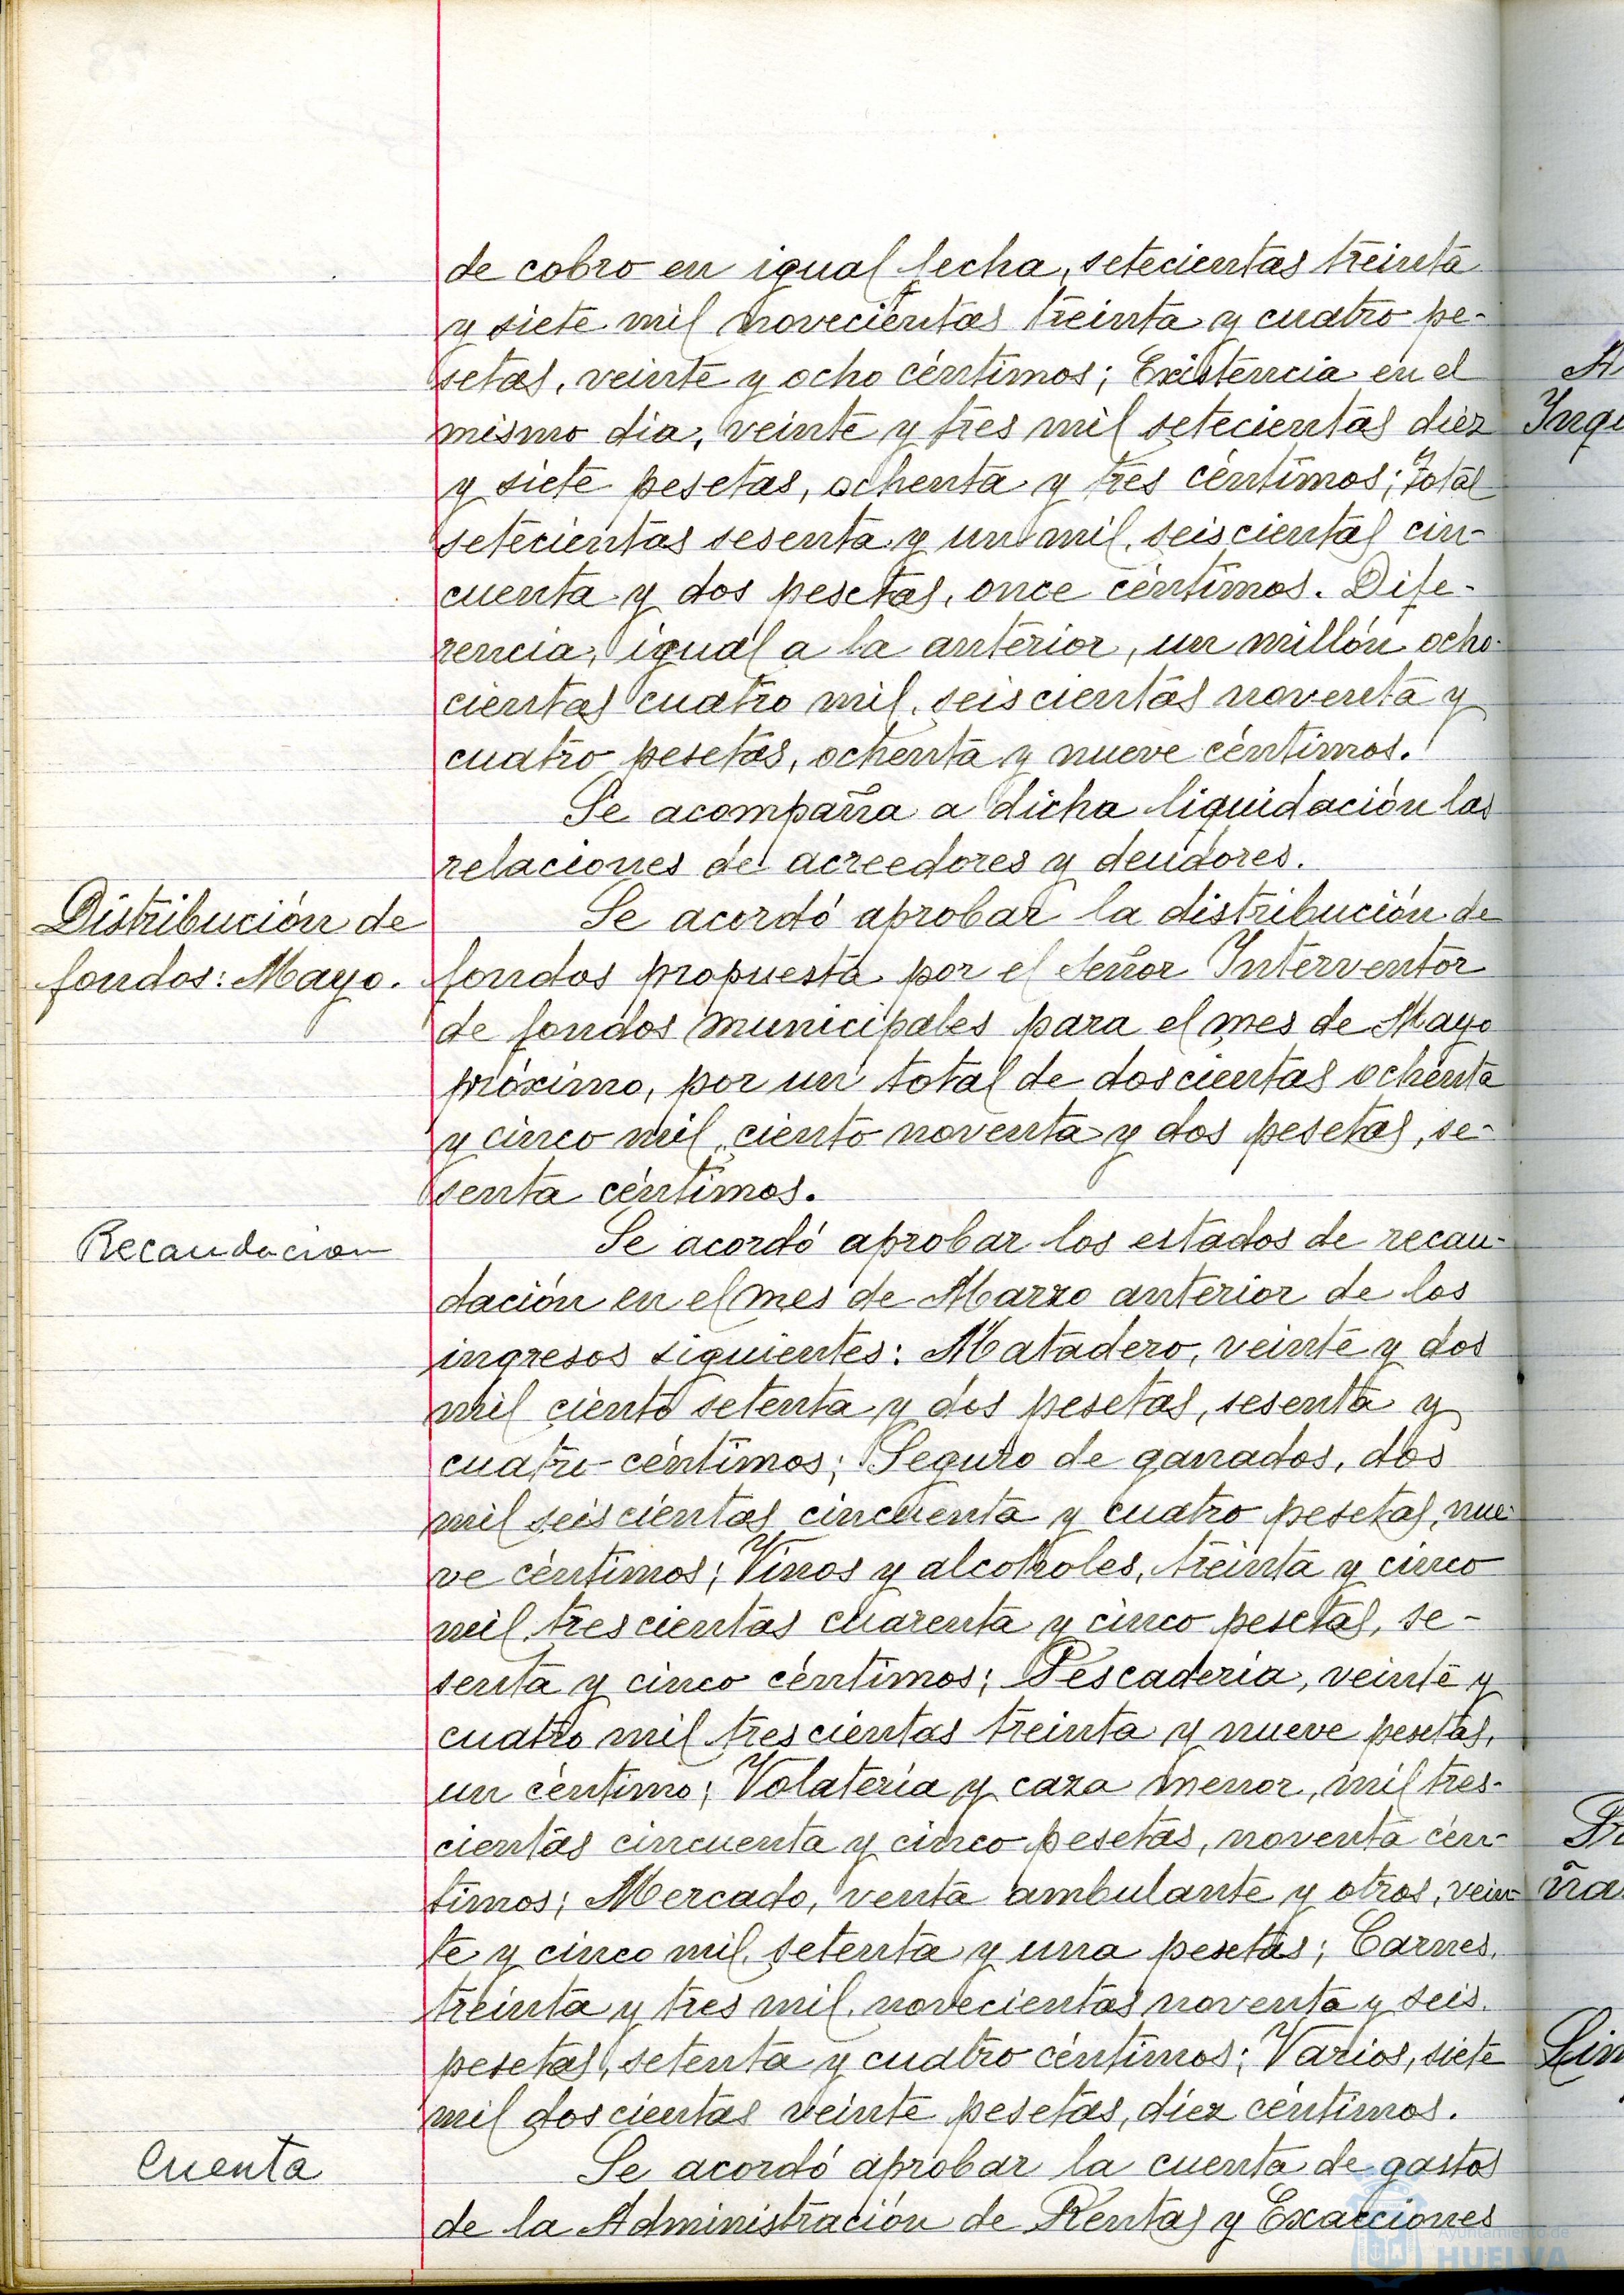 de cobro en igual fecha, setecientas treinta
y siete mil novecientas treinta y cuatro pe-
setas, veinte y ocho céntimos; Existencia en el
mismo dia, veinte y tres mil setecientas diez
y siete pesetas, ochenta y tres céntimos; Total
setecientas sesenta y un mil, seiscientas cin-
cuenta y dos pesetas, once céntimos. Dife-
rencia, igual a la anterior, un millón ocho-
cientas cuatro mil, seiscientas noventa y
cuatro pesetas, ochenta y nueve céntimos.
Se acompaña a dicha liquidación las
relaciones de acreedores y deudores.
Distribución de
fondos: Mayo.
Se acordó aprobar la distribución de
fondos propuesta por el Señor Interventor
de fondos municipales para el mes de Mayo
próximo, por un total de doscientas ochenta
y cinco mil, ciento noventa y dos pesetas, se-
senta céntimos.
Recaudacion
Se acordó aprobar los estados de recau-
dación en el mes de Marzo anterior de los
ingresos siguientes: Matadero, veinte y dos
mil ciento setenta y dos pesetas, sesenta y
cuatro céntimos; Seguro de ganados, dos
mil seiscientas cincuenta y cuatro pesetas, nue-
ve céntimos; Vinos y alcoholes, treinta y cinco
mil, trescientas cuarenta y cinco pesetas, se-
senta y cinco céntimos; Pescaderia, veinte y
cuatro mil trescientas treinta y nueve pesetas,
un céntimo; Volateria y caza menor, mil tres-
cientas cincuenta y cinco pesetas, noventa cén-
timos; Mercado, venta ambulante y otros, vein-
te y cinco mil, setenta y una pesetas; Carnes,
treinta y tres mil, novecientas noventa y seis
pesetas, setenta y cuatro céntimos; Varios, siete
mil doscientas veinte pesetas, diez céntimos.
Cuenta
Se acordó aprobar la cuenta de gastos
de la Administración de Rentas y Exacciones
Ayuntamiento de
HUELVA